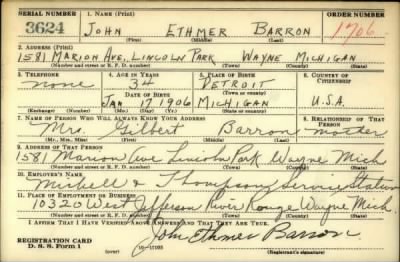 SERIAL NUMBER 1. NAME (Print) ORDER NUMBER
3624 JOHN ETHMER BARRON 1706
(First) (Middle) (Last)
2. ADDRESS (Print)
1581 MARION AVE., LINCOLN PARK WAYNE MICHIGAN
(Number and street or R. F. D. number) (Town) (County) (State)
3. TELEPHONE 4. AGE IN YEARS 5. PLACE OF BIRTH 6. COUNTRY OF CITIZENSHIP
none 34 DETROIT
DATE OF BIRTH (Town or county)
JAN 17 1906 MICHIGAN U.S.A.
(Exchange) (Number) (Mo.) (Day) (Yr.) (State or country)
7. NAME OF PERSON WHO WILL ALWAYS KNOW YOUR ADDRESS 8. RELATIONSHIP OF THAT PERSON
Mrs. Gilbert Barron mother
(Mr., Mrs., Miss) (First) (Middle) (Last)
9. ADDRESS OF THAT PERSON
1581 Marion Ave Lincoln Park Wayne Mich
(Number and street or R. F. D. number) (Town) (County) (State)
10. EMPLOYER'S NAME
& Thompson Service Station
11. PLACE OF EMPLOYMENT OR BUSINESS
10320 West Jefferson River Rouge Wayne Mich.
(Number and street or R. F. D. number) (Town) (County) (State)
I AFFIRM THAT I HAVE VERIFIED ABOVE ANSWERS AND THAT THEY ARE TRUE.
REGISTRATION CARD
D. S. S. Form 1 John Ethmer Barron
(Registrant's signature)